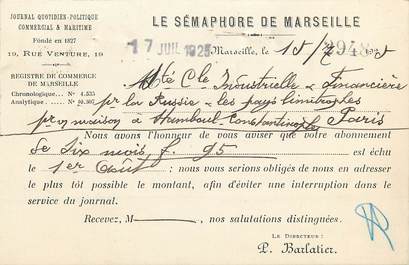 JOURNAL QUOTIDIEN-POLITIQUE
COMMERCIAL & MARITIME
Fondé en 1827
19, RUE VENTURE, 19
REGISTRE DE COMMERCE
DE MARSEILLE
Chronologique... N° 4.535
Analytique... N° 40.367
LE SÉMAPHORE DE MARSEILLE
17 JUIL 1925
Marseille, le 15/7 1925
Sté Cle Industrielle & Financière
pr la Russie & les pays limitrophes
pr sn maison à Stamboul-Constantinople Paris
Nous avons l'honneur de vous aviser que votre abonnement
de six mois, f. 95 est échu
le 1er Août ; nous vous serions obligés de nous en adresser
le plus tôt possible le montant, afin d'éviter une interruption dans le
service du journal.
Recevez, M, nos salutations distinguées.
LE DIRECTEUR :
P. Barlatier.